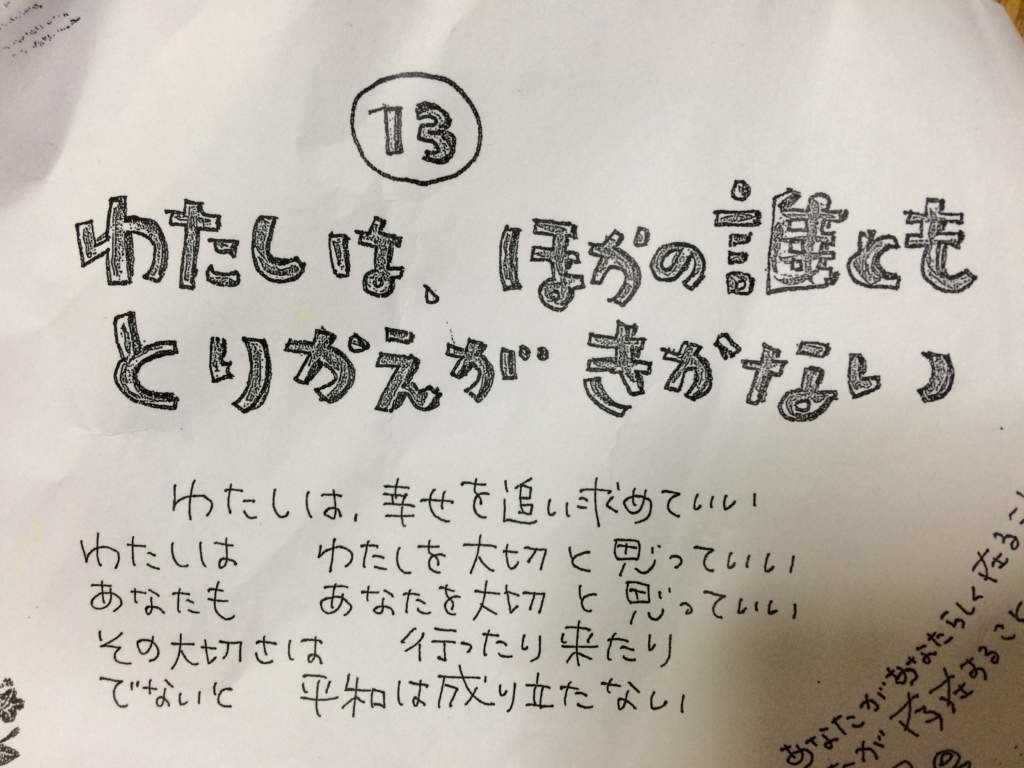 13
わたしは、ほかの誰とも
とりかえがきかない
わたしは、幸せを追い求めていい
わたしは　わたしを大切と思っていい
あなたも　あなたを大切と思っていい
その大切さは　行ったり来たり
でないと　平和は成り立たない
あなたがあなたらしく存在するこ
たが存在すること